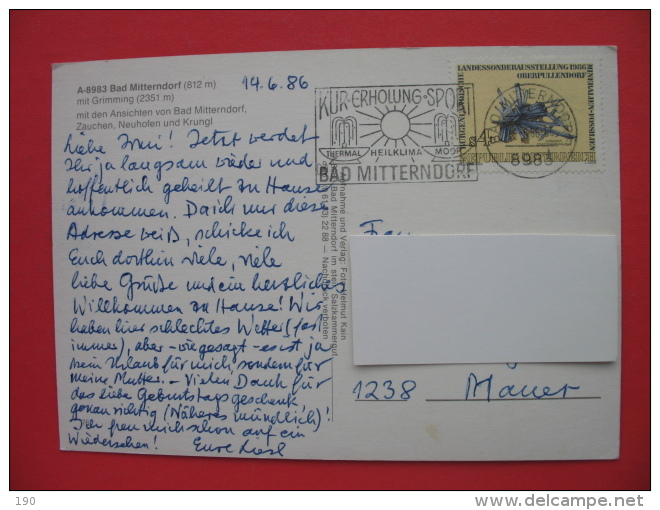 A-8983 Bad Mitterndorf (812 m)
mit Grimming (2351 m)
mit den Ansichten von Bad Mitterndorf,
Zauchen, Neuhofen und Krungl
14.6.86
Liebe! Jetzt werdet
Ihr ja langsam wieder und
hoffentlich geheilt zu Hause
ankommen. Da ich nur diese
Adresse weiß, schicke ich
Euch dorthin viele, viele
liebe Grüße und ein herzliches
Willkommen zu Hause! Wir
haben hier schlechtes Wetter (fast
immer), aber - wie gesagt - es ist ja
kein Urlaub für mich, sondern für
meine Mutter. - Vielen Dank für
das liebe Geburtstagsgeschenk
genau richtig (Näheres mündlich)!
Ich freu mich schon auf ein
Wiedersehen! Eure Liesl
KUR-ERHOLUNG-SPORT
THERMAL HEILKLIMA MOOR
BAD MITTERNDORF
BAD MITTERNDORF
8983
LANDESSONDERAUSSTELLUNG 1986
OBERPULLENDORF
MINERALIEN+FOSSILIEN
S 4
REPUBLIK ÖSTERREICH
Aufnahme und Verlag: Foto Helmut Kain
Bad Mitterndorf im steir. Salzkammergut
22 88 — Nachdruck verboten
1238 Mauer
190
www.delcampe.net